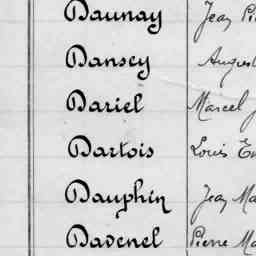 Daunay Jean
Dansey
Dariel Marcel
Dartois Louis
Dauphin Jean
Davenel Pierre